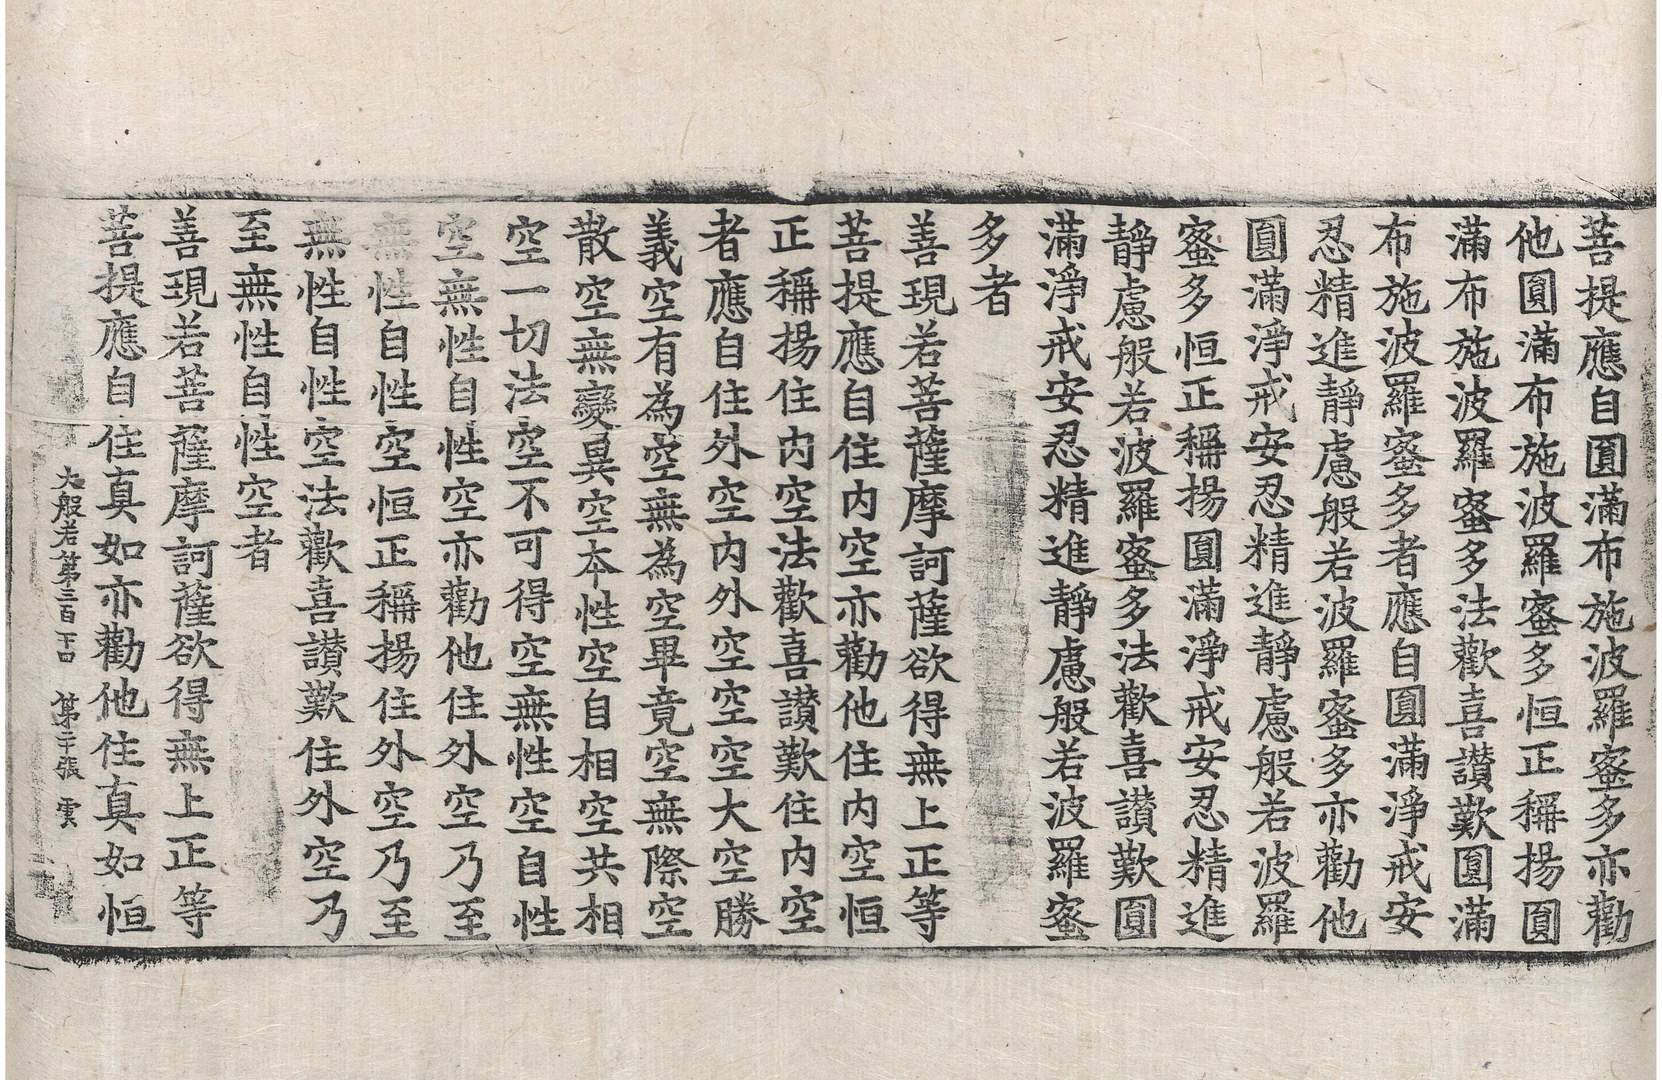 菩提應自圓滿布施波羅蜜多亦勸
他圓滿布施波羅蜜多恒正稱揚圓
滿布施波羅蜜多法歡喜讃歎圓滿
布施波羅蜜多者應自圓滿淨戒安
忍精進靜慮般若波羅蜜多亦勸他
圓滿淨戒安忍精進靜慮般若波羅
蜜多恒正稱揚圓滿淨戒安忍精進
靜慮般若波羅蜜多法歡喜讃歎圓
滿淨戒安忍精進靜慮般若波羅蜜
多者
善現若菩薩摩訶薩欲得無上正等
菩提應自住内空亦勸他住内空恒
正稱揚住内空法歡喜讃歎住内空
者應自住外空内外空空空大空勝
義空有為空無為空畢竟空無際空
散空無變異空本性空自相空共相
空一切法空不可得空無性空自性
空無性自性空亦勸他住外空乃至
無性自性空恒正稱揚住外空乃至
無性自性空法歡喜讃歎住外空乃
至無性自性空者
善現若菩薩摩訶薩欲得無上正等
菩提應自住真如亦勸他住真如恒
大般若第三百 第二十張 雲